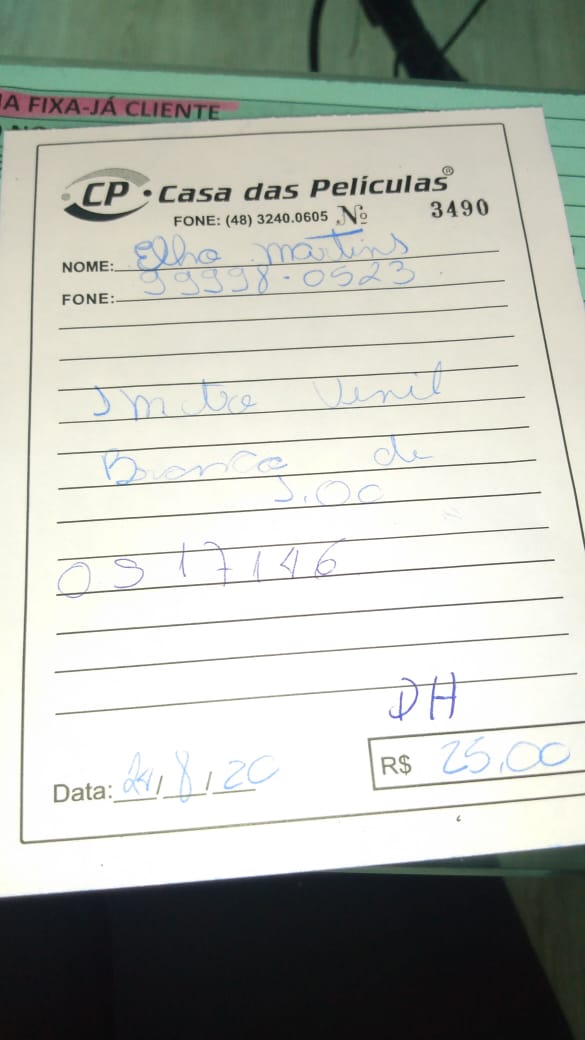 A FIXA-JÁ CLIENTE
CP • Casa das Películas®
FONE: (48) 3240.0605 Nº 3490
NOME: Elho martins
FONE: 99998-0523
1 metro Venil
Branco de
1.00
0317146
DH
R$ 25,00
Data: 24/8/20